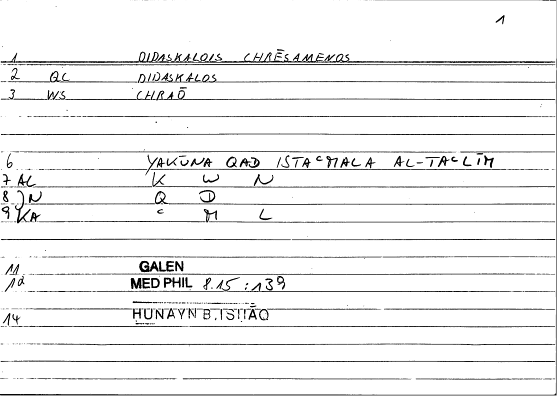 1
1 DIDASKALOIS CHRĒSAMENOS
2 QC DIDASKALOS
3 WS CHRAŌ
6 YAKŪNA QAD ISTAᶜMALA AL-TAᶜLĪM
7 AL K W N
8 JN Q D
9 KA ᶜ M L
11 GALEN
12 MED PHIL 8.15:139
14 HUNAYN B.ISHĀQ